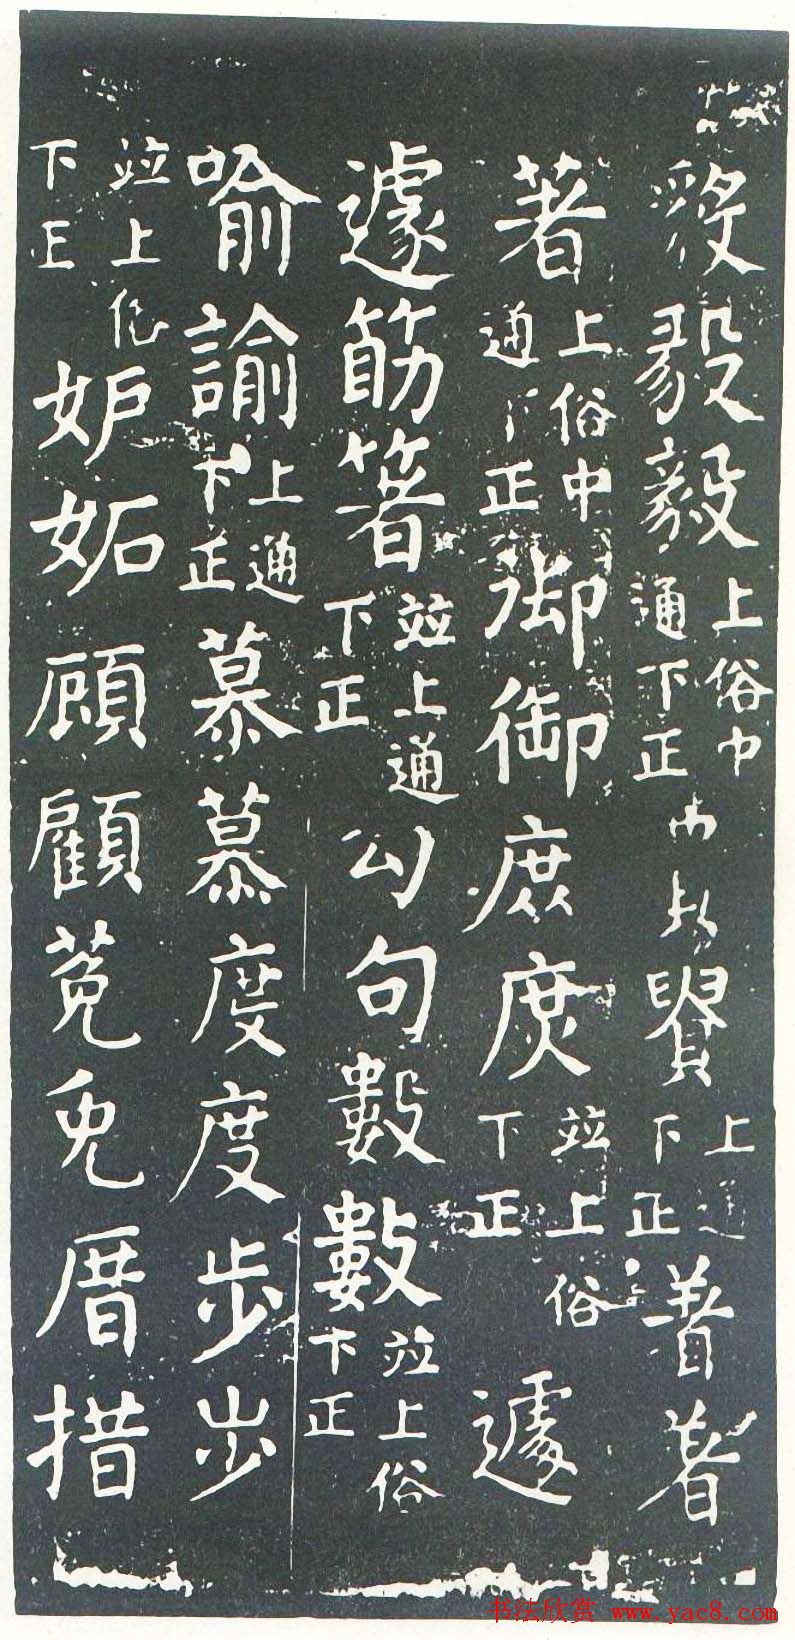 毅毅上俗中通下正上通下正著著
著上俗中通下正御御庶庶竝上俗下正遽
遽筯箸竝上通下正勾句數數竝上俗下正
喻諭上通下正慕慕度度步步
竝上俗下正妒妬顧顧菟兔厝措
书法欣赏 www.yac8.com